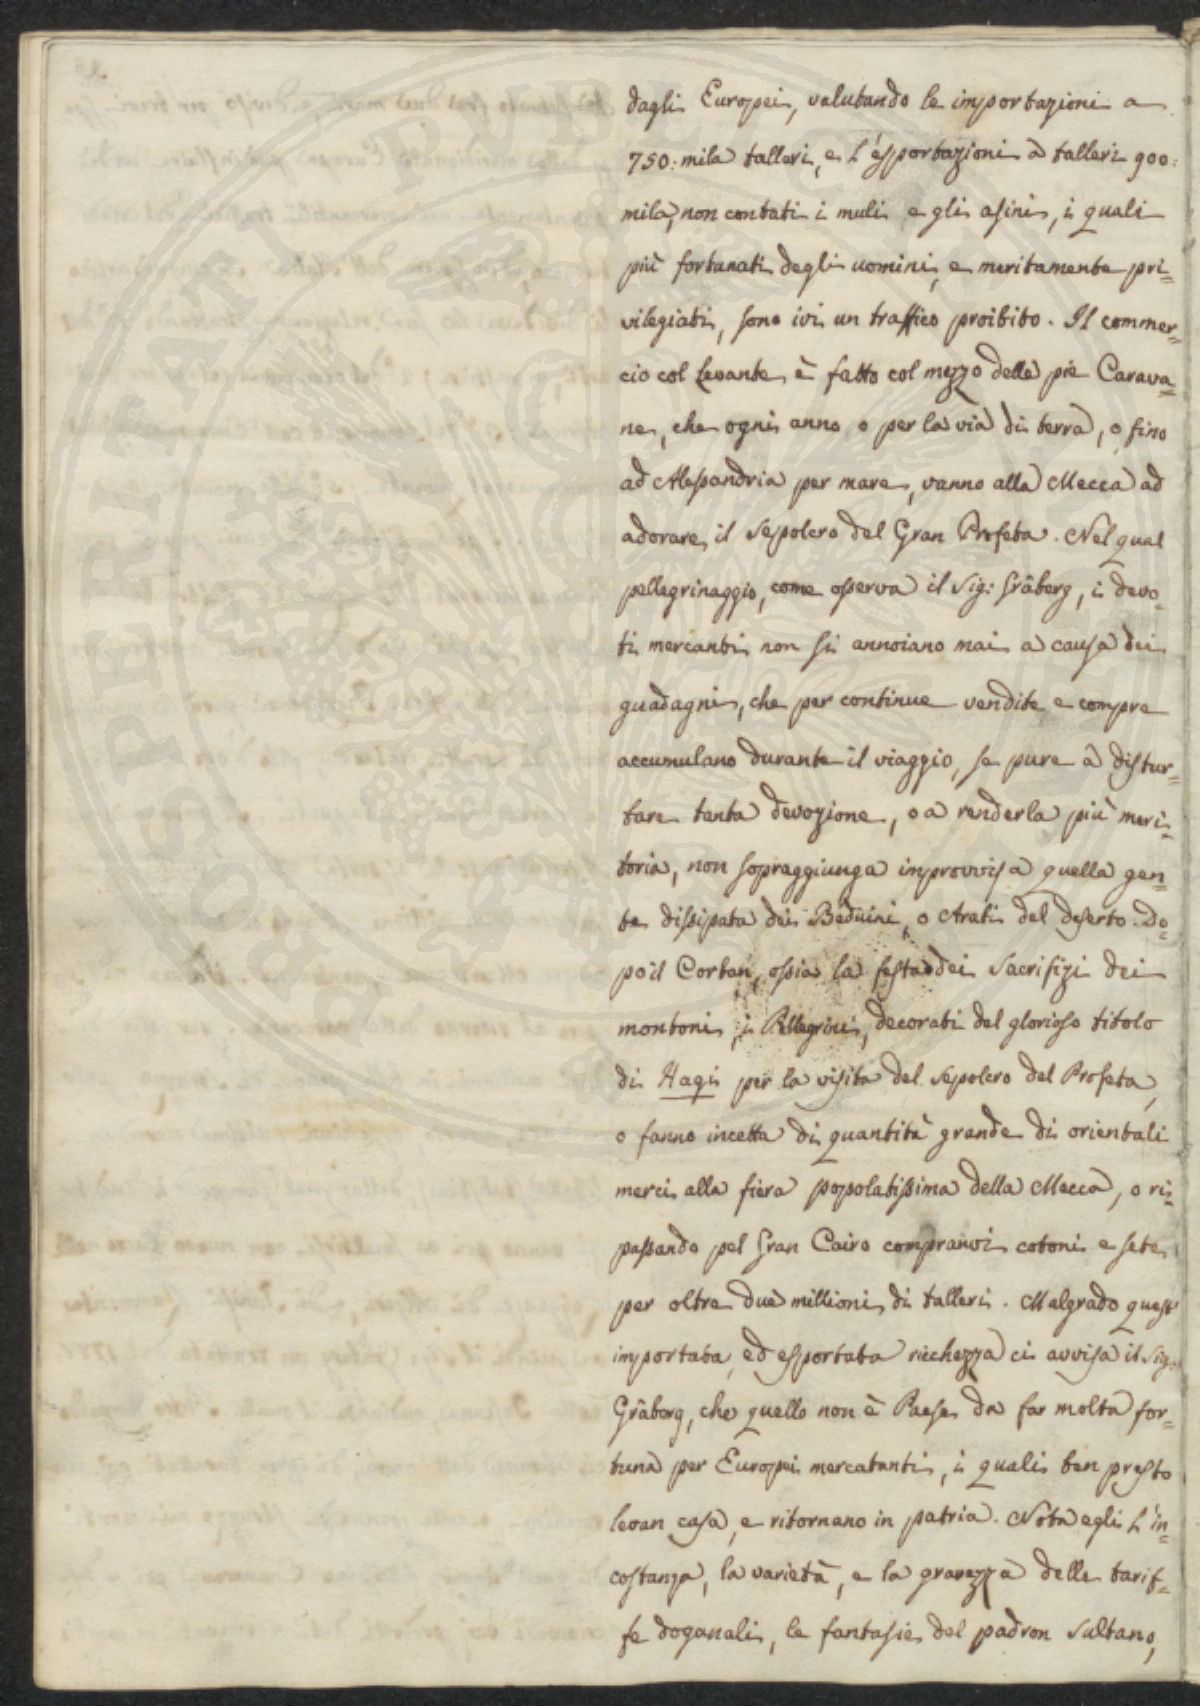 dagli Europei, valutando le importazioni a
750: mila talleri, e l'esportazioni a talleri 900:
mila, non contati i muli e gli asini, i quali
più fortunati degli uomini, e meritamente pri=
vilegiati, sono ivi un traffico proibito. Il commer=
cio col Levante è fatto col mezzo delle pie Carava=
ne, che ogni anno o per la via di terra, o fino
ad Alessandria per mare, vanno alla Mecca ad
adorare il Sepolcro del Gran Profeta. Nel qual
pellegrinaggio, come osserva il Sig: Gräberg, i devo=
ti mercanti non si annoiano mai a causa dei
guadagni, che per continue vendite e compre
accumulano durante il viaggio, se pure a distur=
bare tanta devozione, o a renderla più meri=
toria, non sopraggiunga improvvisa quella gen=
te dissipata dei Beduini, o Arabi del deserto. Do=
po il Corban, ossia la festa dei Sacrifizi dei
montoni, i Pellegrini, decorati del glorioso titolo
di Hagi per la visita del Sepolcro del Profeta,
o fanno incetta di quantità grande di orientali
merci alla fiera popolatissima della Mecca, o ri=
passando pel Gran Cairo compranvi cotoni e sete
per oltre due millioni di talleri. Malgrado questa
importata, ed esportata ricchezza ci avvisa il Sig:
Gräberg, che quello non è Paese da far molta for=
tuna per Europei mercatanti, i quali ben presto
levan casa, e ritornano in patria. Nota egli l'in=
costanza, la varietà, e la gravezza delle tarif=
fe doganali, le fantasie del padron Sultano,
PROPERITATI PUBLICAE